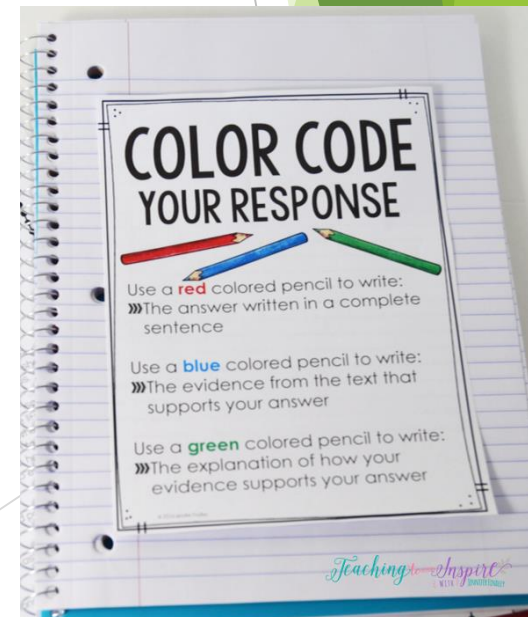 COLOR CODE
YOUR RESPONSE
Use a red colored pencil to write:
»»The answer written in a complete
sentence
Use a blue colored pencil to write:
»»The evidence from the text that
supports your answer
Use a green colored pencil to write:
»»The explanation of how your
evidence supports your answer
Teaching to Inspire
WITH JENNIFER FINDLEY